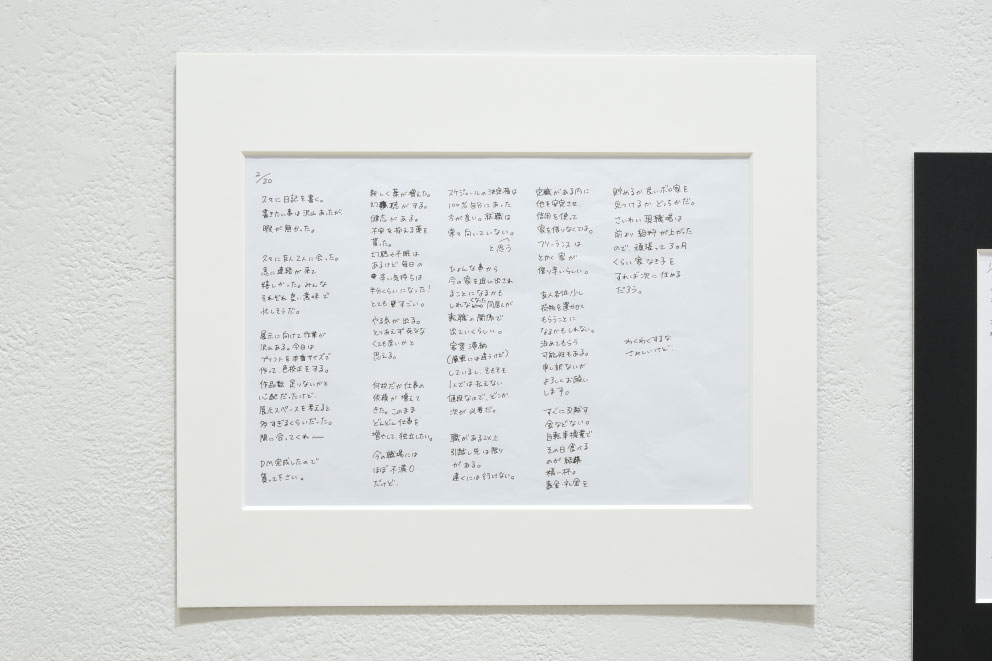 2/20
久々に日記を書く。
書きたい事は沢山あったが
暇が無かった。
久々に友人2人に会った。
急に連絡が来て
嬉しかった。みんな
それぞれ良い意味で
忙しそうだ。
展示に向けて作業が
沢山ある。今日は
プリントを本番サイズで
作って、色校正をする。
作品数 足りないかと
心配だったけど、
展示スペースを考えると
多すぎるくらいだった。
間に合ってくれー
DM完成したので
貰って下さい。
新しく薬が増えた。
幻聴がする。
健忘がある。
不安を抑える薬を
貰った。
幻聴や不眠は
あるけど毎日の
辛い気持ちは
半分くらいになった!
とても凄すごい。
やる気が出る。
とりあえず死なな
くても良いかと
思える。
何故だか仕事の
依頼が増えて
きた。このまま
どんどん仕事を
増やして、独立したい。
今の職場には
ほぼ不満0
だけど、
スケジュールの決定権は
100%自分にあった
方が良い。就職は
常々向いていない。
と思う
ひょんな事から
今の家を追い出され
ることになるかも
しれなくなった 同居人が
転職の関係で
出ていくらしい。
家賃滞納
(厳密には違うけど)
しているし、そもそも
1人では払えない
値段なので、どこか
次が必要だ。
職がある以上
引越し先は限り
がある。
遠くには行けない。
定職がある内に
他を安定させ、
信用を使って
家を借りなくては。
フリーランスは
とかく家が
借り辛いらしい。
友人各位、少し
荷物を置かせて
もらうことに
なるかもしれない。
泊めてもらう
可能性もある。
申し訳ないが
よろしくお願い
します。
すぐに引越す
金などない。
自転車操業で
その日食べる
のが結構
精一杯。
敷金・礼金を
貯めるか 良いボロ家を
見つけるか、どっちかだ。
さいわい現職場は
前より給料が上がった
ので、頑張って3ヵ月
くらい家なき子を
すれば次に住める
だろう。
わくわくするな
さみしいけど、